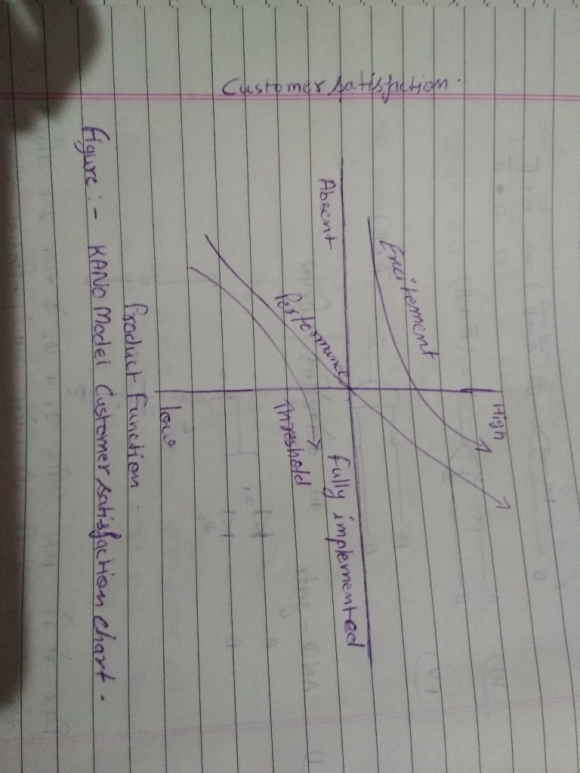 Customer Satisfaction.
High
Excitement
Performance
Absent
fully implemented
Threshold
low
Product function.
figure:- KANO Model Customer satisfaction chart.